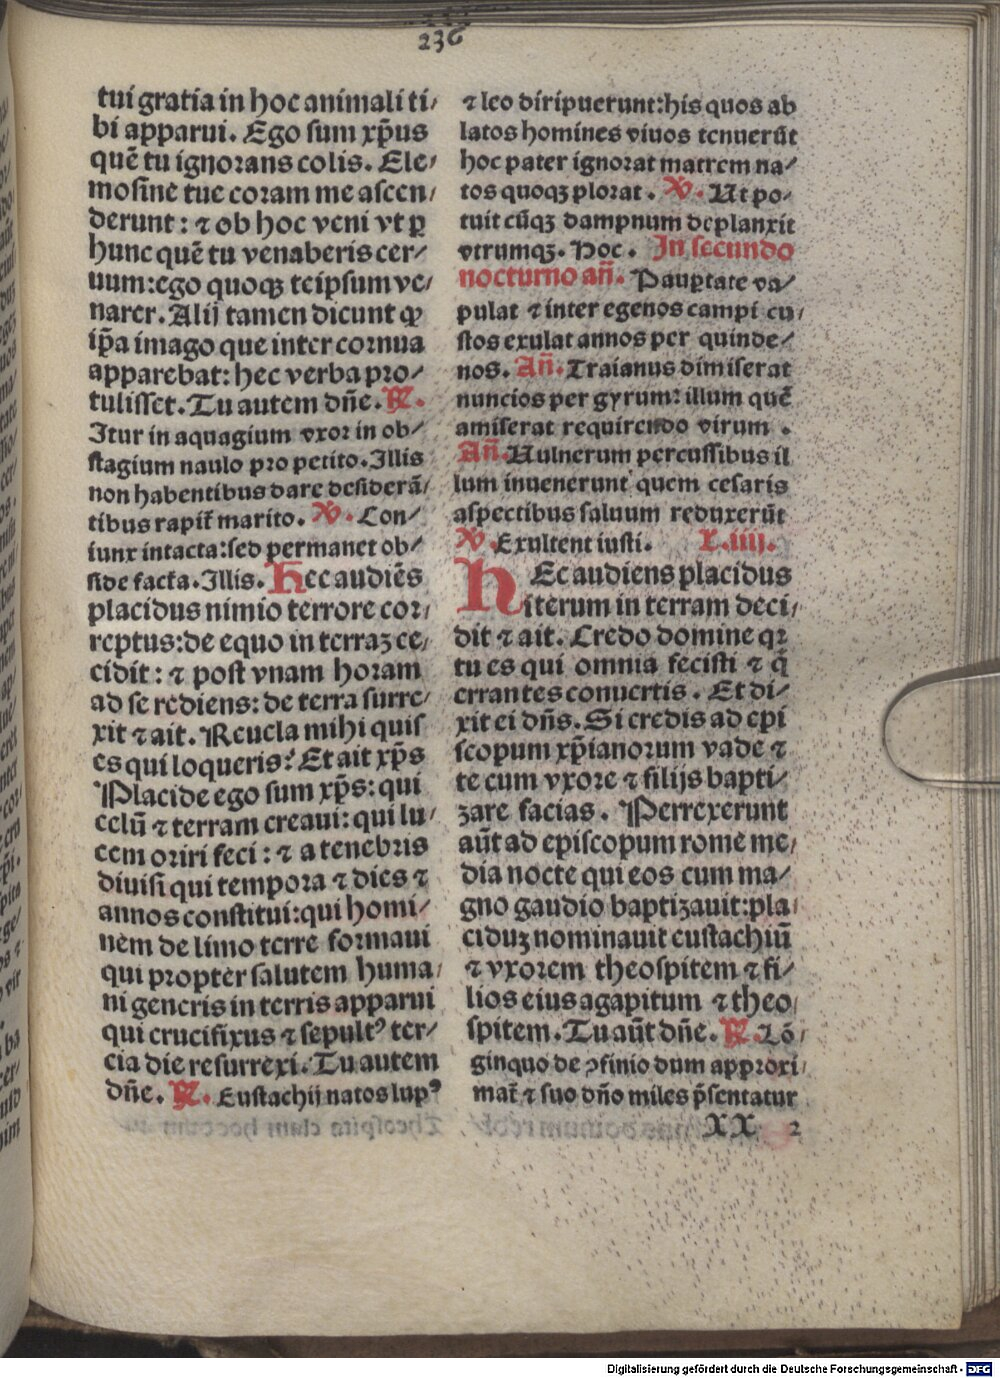 236
tui gratia in hoc animali ti/
bi apparui. Ego sum xp̄us
quē tu ignorans colis. Ele/
mosine tue coram me ascen/
derunt: ⁊ ob hoc veni vt ꝑ
hunc quē tu venaberis cer/
uum: ego quoqꝫ teipsum ve/
narer. Alij tamen dicunt ꝙ
ip̄a imago que inter cornua
apparebat: hec verba pro/
tulisset. Tu autem dn̄e. ℟.
Itur in aquagium vxor in ob/
stagium naulo pro petito. Illis
non habentibus dare desiderā/
tibus rapit̄ marito. ℣. Con/
iunx intacta: sed permanet ob/
side facta. Illis. Hec audiēs
placidus nimio terrore cor/
reptus: de equo in terraꝫ ce/
cidit: ⁊ post vnam horam
ad se rediens: de terra surre/
xit ⁊ ait. Reuela mihi quis
es qui loqueris? Et ait xp̄s
Placide ego sum xp̄s: qui
celū ⁊ terram creaui: qui lu/
cem oriri feci: ⁊ a tenebris
diuisi qui tempora ⁊ dies ⁊
annos constitui: qui homi/
nem de limo terre formaui
qui propter salutem huma/
ni generis in terris apparui
qui crucifixus ⁊ sepultꝰ ter/
cia die resurrexi. Tu autem
dn̄e. ℟. Eustachij natos lupꝰ
⁊ leo diripuerunt: his quos ab
latos homines viuos tenuerūt
hoc pater ignorat matrem na/
tos quoqꝫ plorat. ℣. Ut po/
tuit cūqꝫ dampnum deplanxit
vtrumqꝫ. Hoc. In secundo
nocturno an̄. Pauꝑtate va/
pulat ⁊ inter egenos campi cu/
stos exulat annos per quinde/
nos. An̄. Traianus dimiserat
nuncios per gyrum: illum quē
amiserat requirendo virum.
An̄. Uulnerum percussibus il
lum inuenerunt quem cesaris
aspectibus saluum reduxerūt
℣. Exultent iusti. L. iiij.
HEc audiens placidus
iterum in terram deci/
dit ⁊ ait. Credo domine qꝛ
tu es qui omnia fecisti ⁊ q̄
errantes conuertis. Et di/
xit ei dn̄s. Si credis ad epi
scopum xp̄ianorum vade ⁊
te cum vxore ⁊ filijs bapti/
zare facias. Perrexerunt
aūt ad episcopum rome me/
dia nocte qui eos cum ma/
gno gaudio baptizauit: pla/
ciduꝫ nominauit eustachiū
⁊ vxorem theospitem ⁊ fi/
lios eius agapitum ⁊ theo
spitem. Tu aūt dn̄e. ℟. Lō/
ginquo de ꝯfinio dum approxi/
mat̄ ⁊ suo dn̄o miles p̄sentatur
XX 2
Digitalisierung gefördert durch die Deutsche Forschungsgemeinschaft - DFG